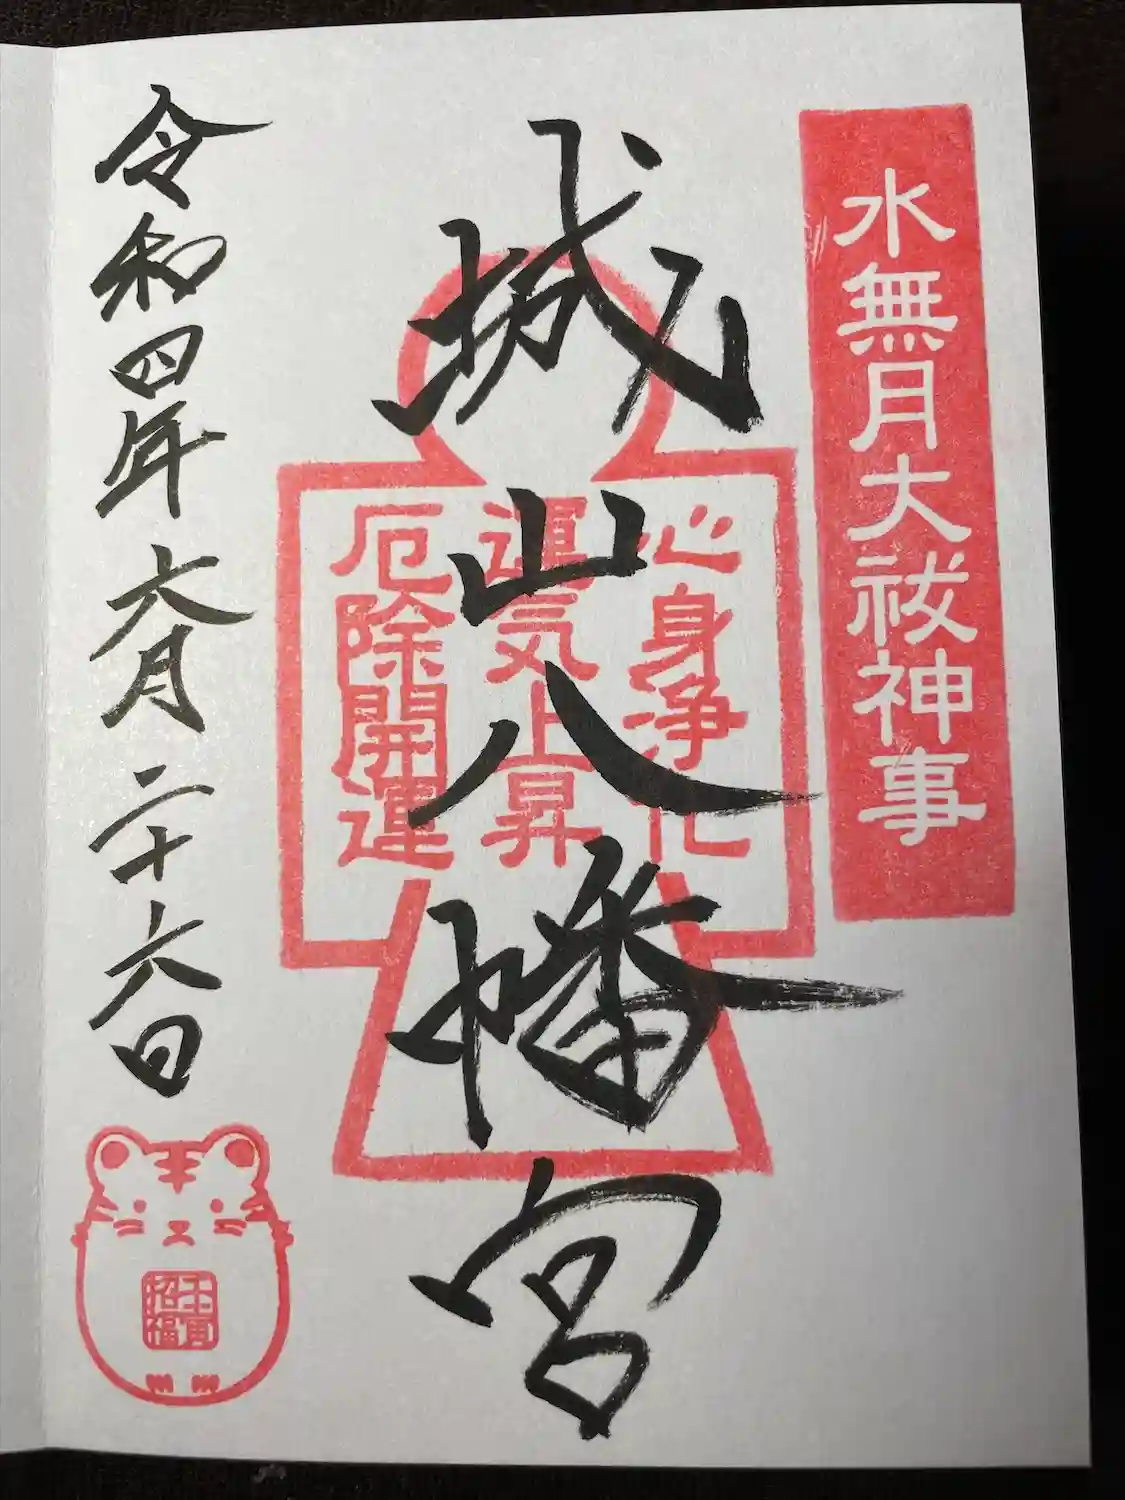 水無月大祓神事
城山八幡宮
心身浄化
運気上昇
厄除開運
令和四年六月二十六日
壬寅
招福